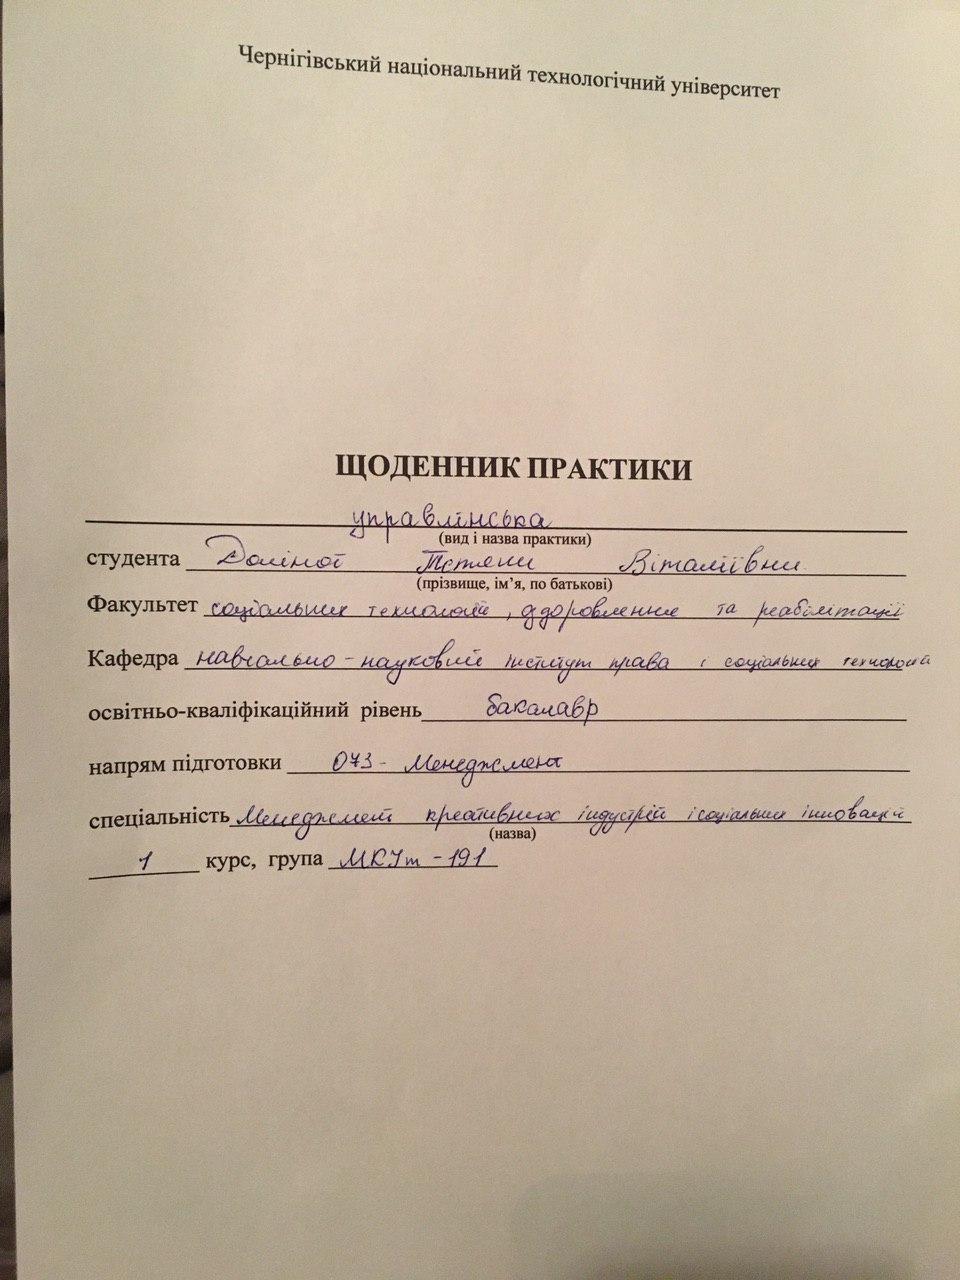 Чернігівський національний технологічний університет
ЩОДЕННИК ПРАКТИКИ
управлінська
(вид і назва практики)
студента Доліної Тетяни Віталіївни
(прізвище, ім’я, по батькові)
Факультет соціальних технологій, оздоровлення та реабілітації
Кафедра навчально-науковий інститут права і соціальних технологій
освітньо-кваліфікаційний рівень бакалавр
напрям підготовки 073 - Менеджмент
спеціальність Менеджмент креативних індустрій і соціальних інновацій
(назва)
1 курс, група МКІт-191